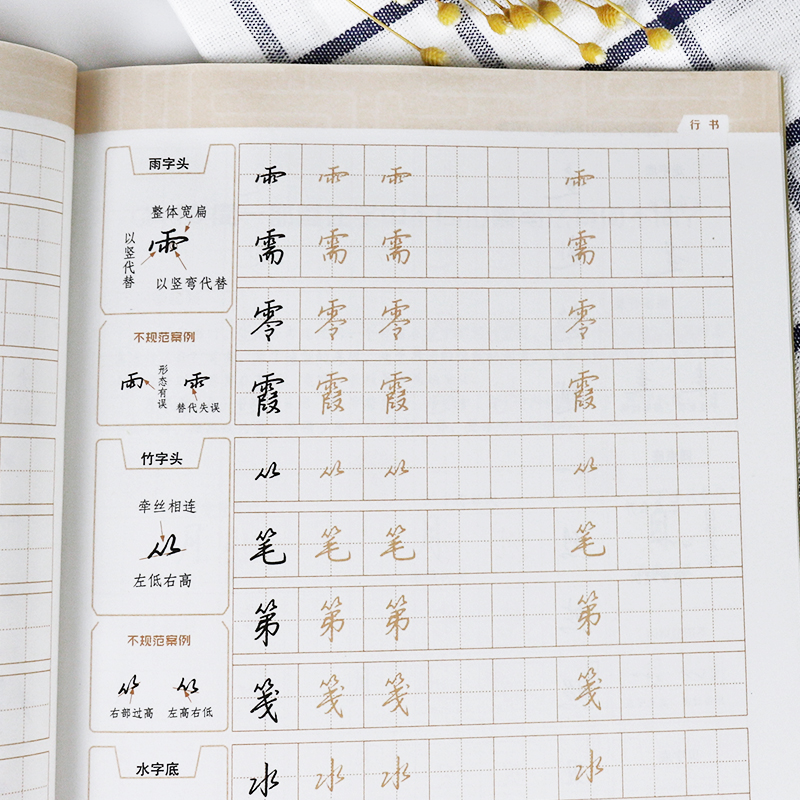 行 书
雨字头
整体宽扁
以竖代替
⻗
以竖弯代替
不规范案例
形态有误
替代失误
⻗ ⻗ ⻗ ⻗
需 需 需 需
零 零 零 零
霞 霞 霞 霞
竹字头
牵丝相连
左低右高
不规范案例
右部过高
左高右低
⺮ ⺮ ⺮ ⺮
笔 笔 笔 笔
第 第 第 第
笺 笺 笺 笺
水字底
水 水 水 水